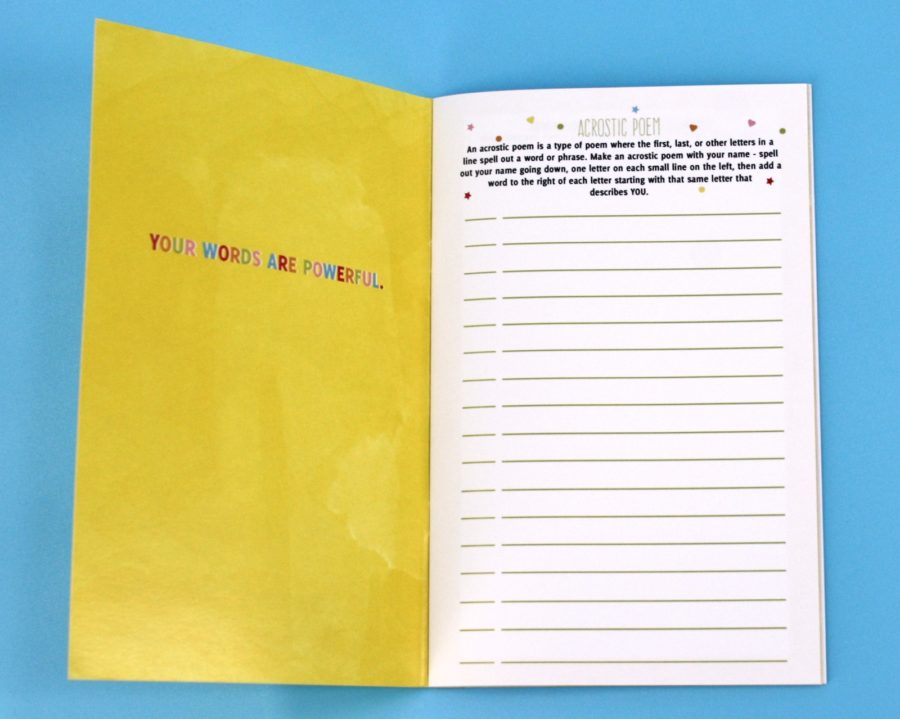 YOUR WORDS ARE POWERFUL.
ACROSTIC POEM
An acrostic poem is a type of poem where the first, last, or other letters in a
line spell out a word or phrase. Make an acrostic poem with your name - spell
out your name going down, one letter on each small line on the left, then add a
word to the right of each letter starting with that same letter that
describes YOU.